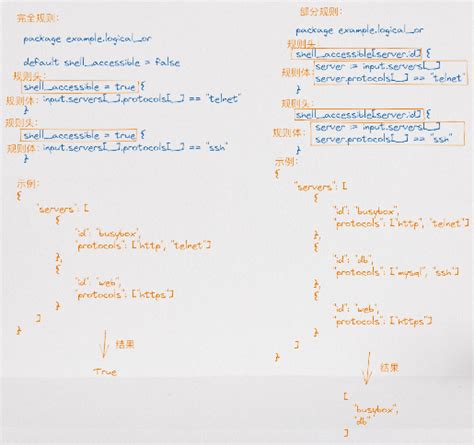 完全规则:
package example.logical_or
default shell_accessible = false
规则头:
shell_accessible = true {
规则体: input.servers[_].protocols[_] == "telnet"
}
规则头:
shell_accessible = true {
规则体: input.servers[_].protocols[_] == "ssh"
}
示例:
{
"servers": [
{
"id": "busybox",
"protocols": ["http", "telnet"]
},
{
"id": "web",
"protocols": ["https"]
}
]
}
结果
True
部分规则:
package example.logical_or
规则头:
shell_accessible[server.id] {
规则体: server := input.servers[_]
server.protocols[_] == "telnet"
}
规则头:
shell_accessible[server.id] {
规则体: server := input.servers[_]
server.protocols[_] == "ssh"
}
示例:
{
"servers": [
{
"id": "busybox",
"protocols": ["http", "telnet"]
},
{
"id": "db",
"protocols": ["mysql", "ssh"]
},
{
"id": "web",
"protocols": ["https"]
}
]
}
结果
[
"busybox",
"db"
]